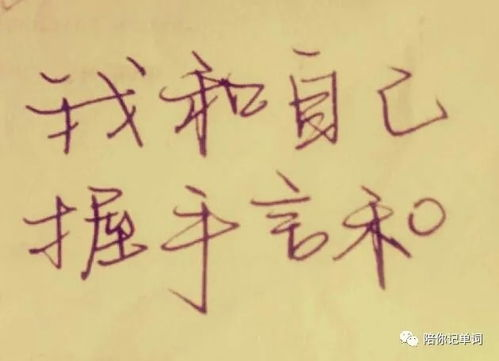 我和自己
握手言和
陪你记单词